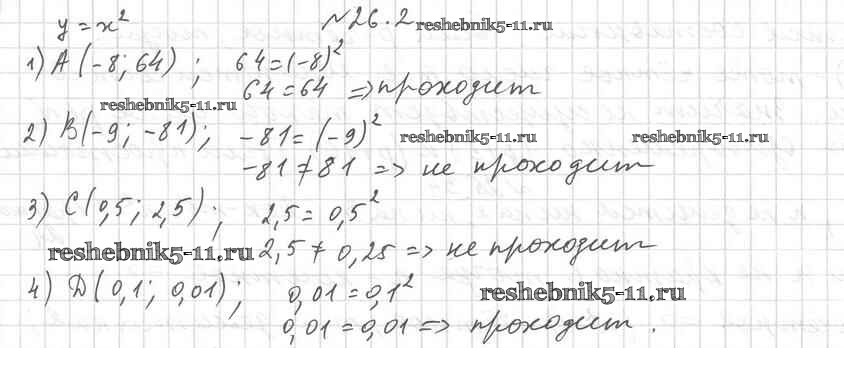 y = x² №26.2 reshebnik5-11.ru
1) A (-8; 64) ; 64 = (-8)²
64 = 64 => проходит
reshebnik5-11.ru
2) B (-9; -81) ; -81 = (-9)² reshebnik5-11.ru reshebnik5-11.ru
-81 ≠ 81 => не проходит
3) C (0,5; 2,5) ; 2,5 = 0,5²
reshebnik5-11.ru 2,5 ≠ 0,25 => не проходит
4) D (0,1; 0,01) ; 0,01 = 0,1² reshebnik5-11.ru
0,01 = 0,01 => проходит .